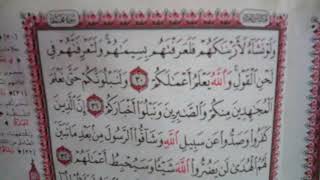 وَلَوْ نَشَآءُ لَأَرَيْنَٰكَهُمْ فَلَعَرَفْتَهُم بِسِيمَٰهُمْ وَلَتَعْرِفَنَّهُمْ فِى
لَحْنِ ٱلْقَوْلِ وَٱللَّهُ يَعْلَمُ أَعْمَٰلَكُمْ ٣٠ وَلَنَبْلُوَنَّكُمْ حَتَّىٰ نَعْلَمَ
ٱلْمُجَٰهِدِينَ مِنكُمْ وَٱلصَّٰبِرِينَ وَنَبْلُوَا۟ أَخْبَارَكُمْ ٣١ إِنَّ ٱلَّذِينَ
كَفَرُوا۟ وَصَدُّوا۟ عَن سَبِيلِ ٱللَّهِ وَشَآقُّوا۟ ٱلرَّسُولَ مِنۢ بَعْدِ مَا تَبَيَّنَ
لَهُمُ ٱلْهُدَىٰ لَن يَضُرُّوا۟ ٱللَّهَ شَيْـًٔا وَسَيُحْبِطُ أَعْمَٰلَهُمْ ٣٢